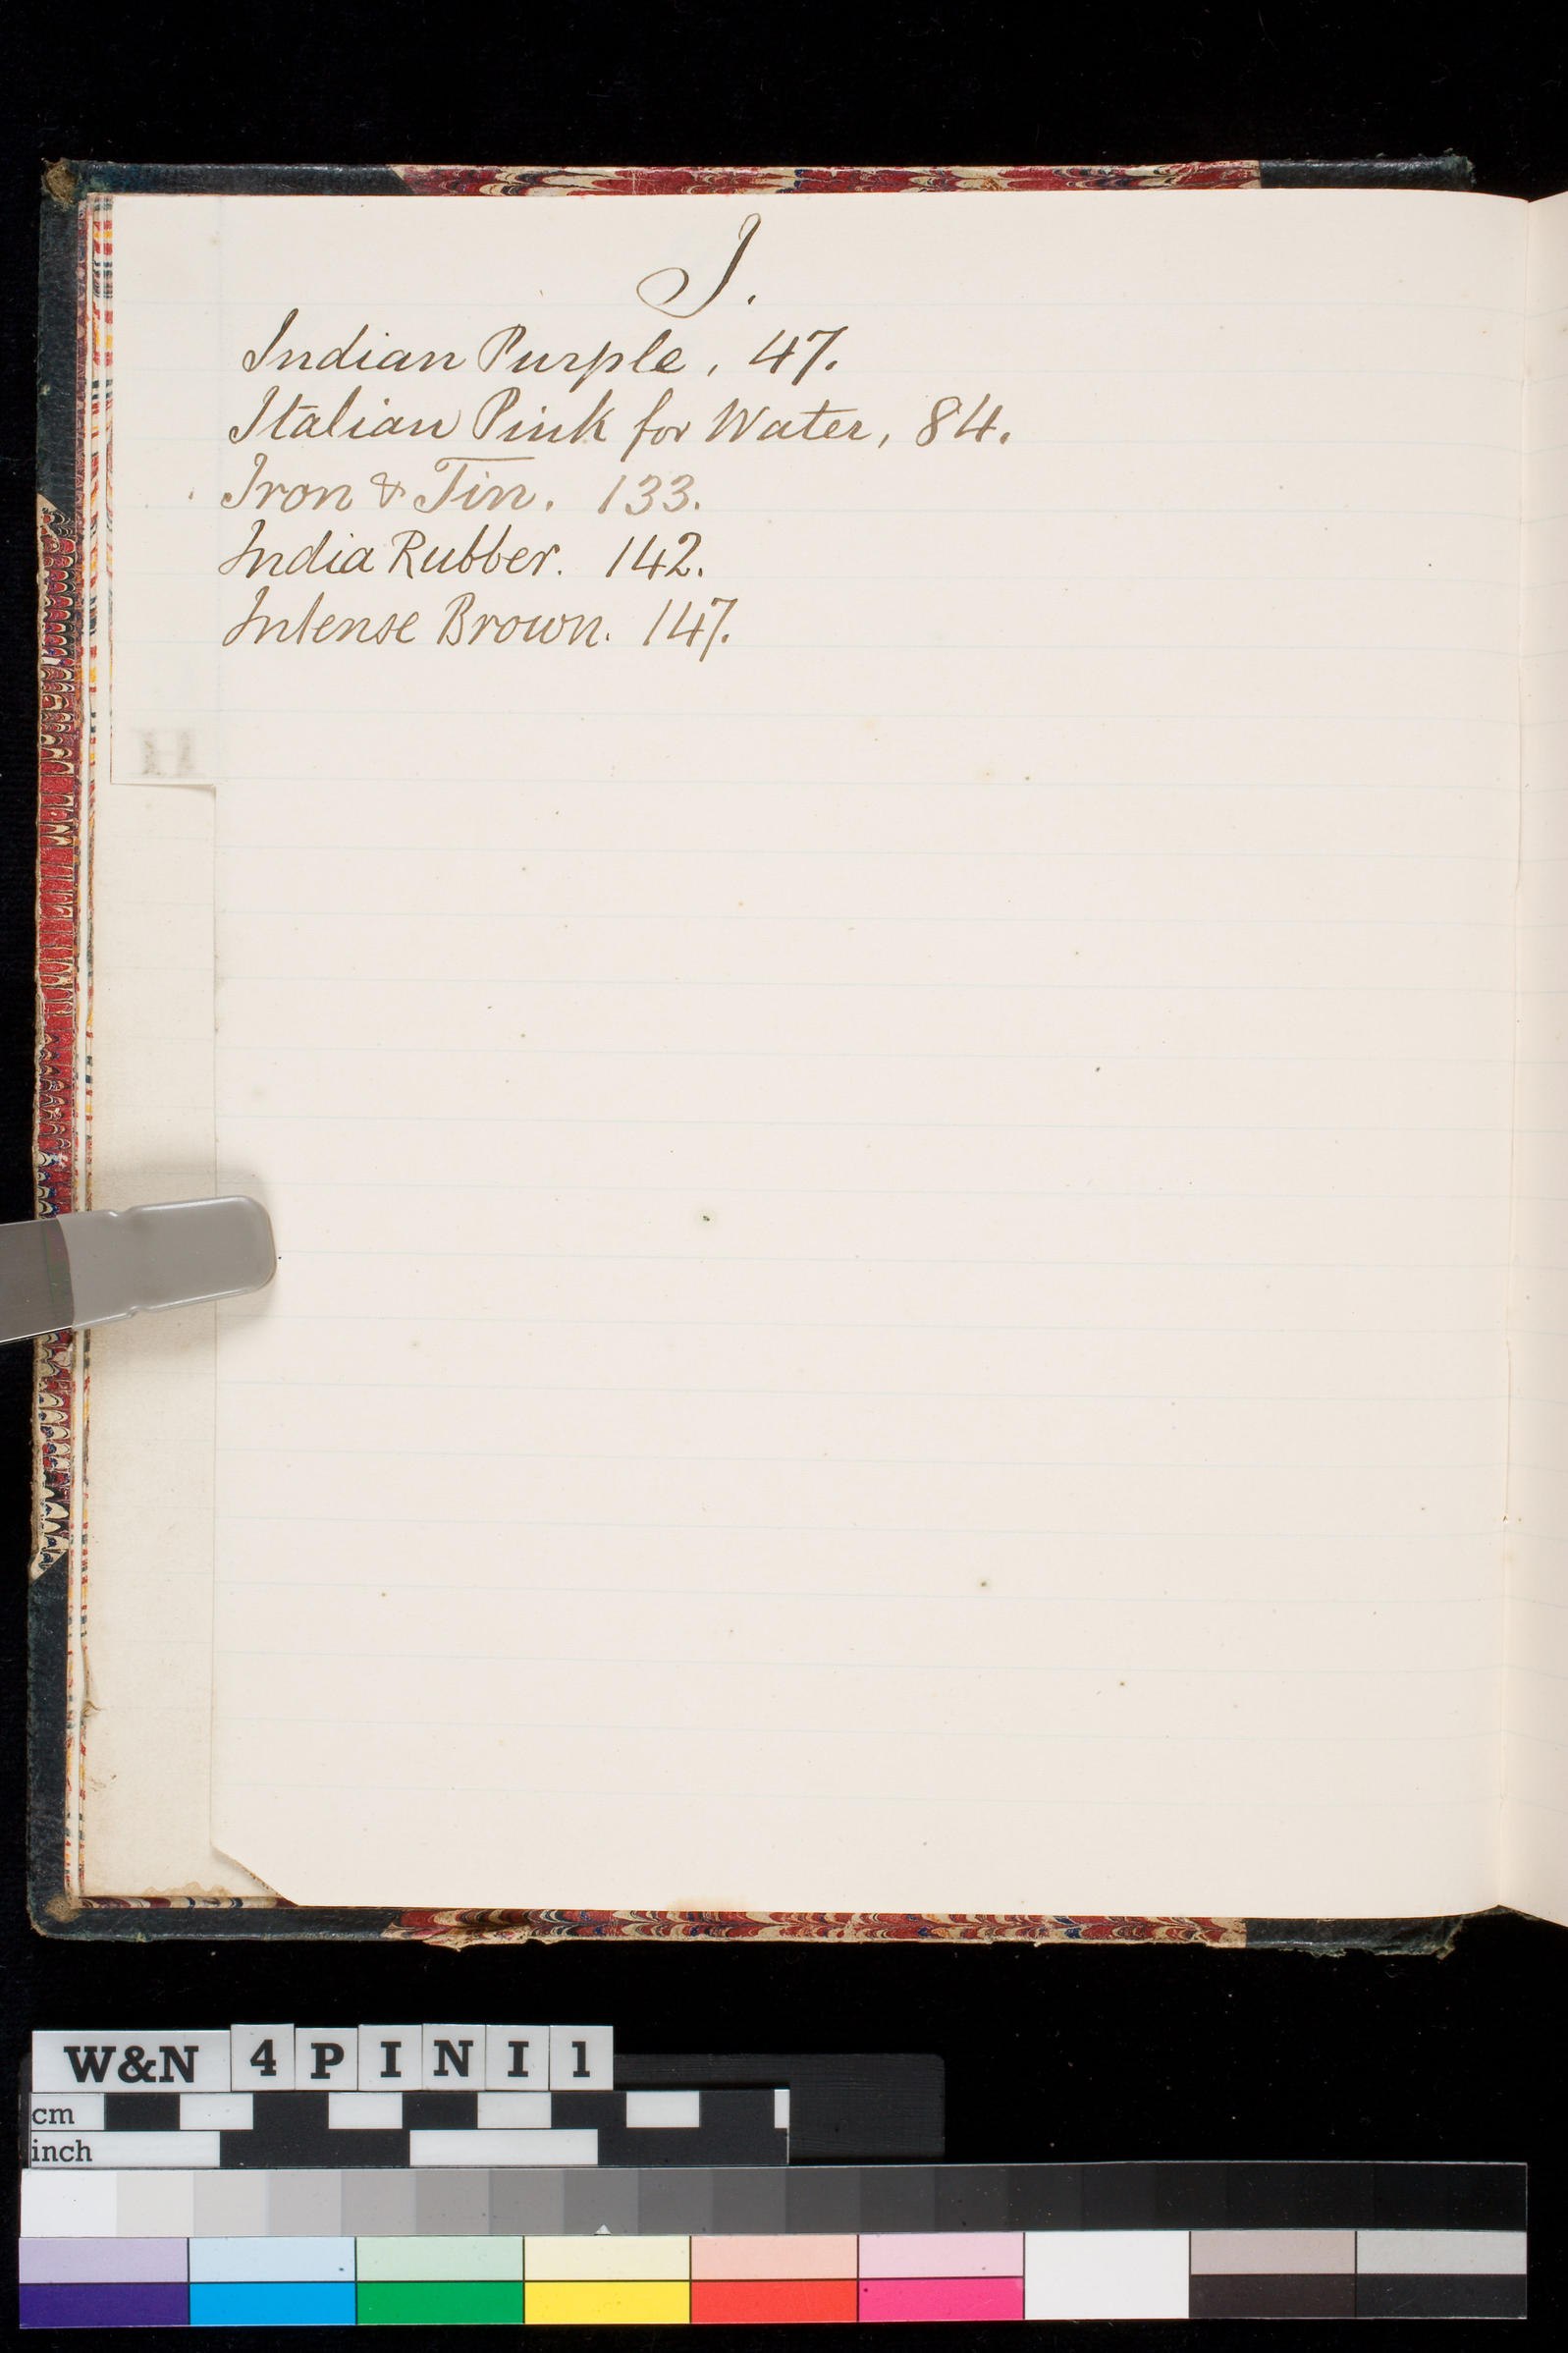 I.
Indian Purple, 47.
Italian Pink for Water, 84.
Iron & Tin. 133.
India Rubber. 142.
Intense Brown. 147.
H
W&N 4PINI1
cm
inch